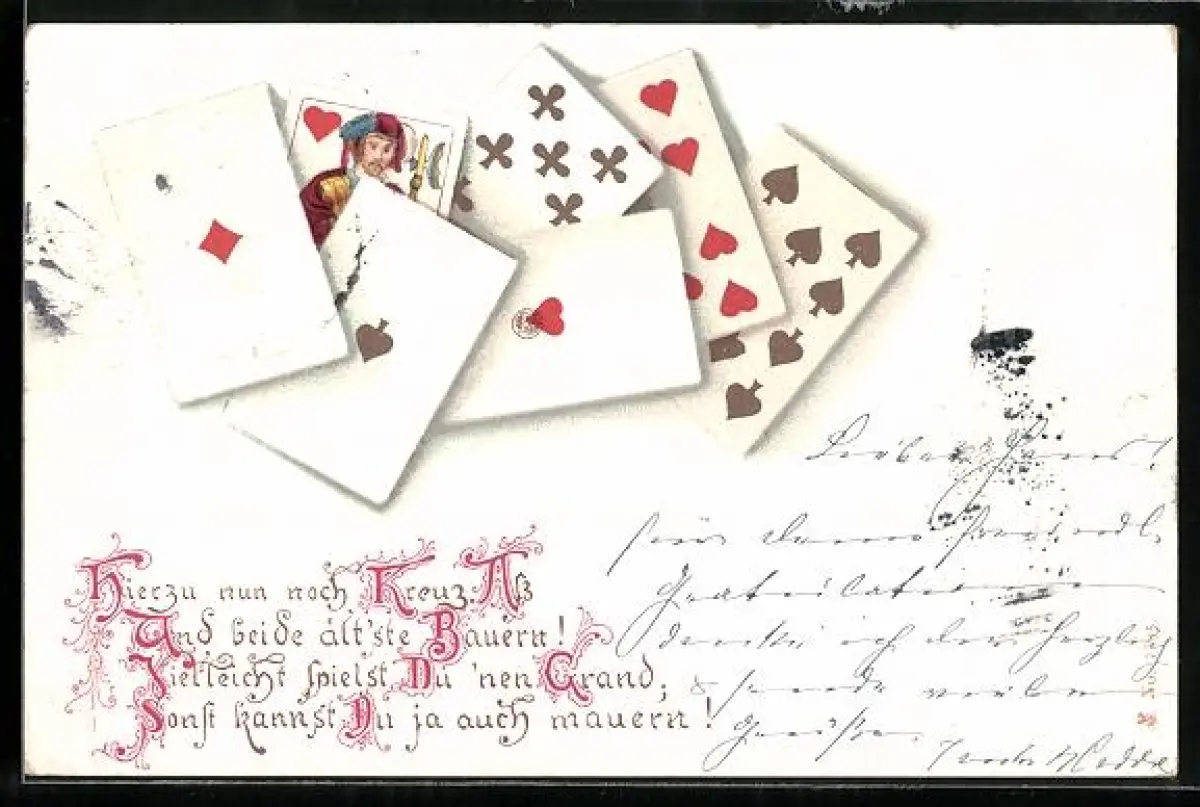 Hierzu nun noch Kreuz-Aß
Und beide ält'ste Bauern!
Vielleicht spielst Du 'nen Grand,
Sonst kannst Du ja auch mauern!
Lieber Hans!
für Deine freundl.
Gratulation
danke ich Dir herzlich
& sende vielen
Grüße.